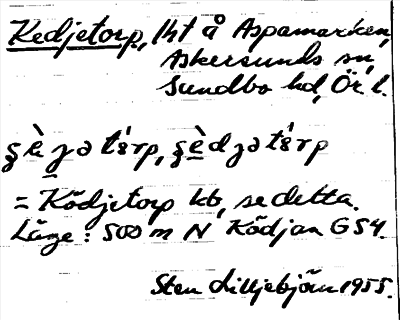 Kedjetorp, lht å Aspamarken,
Askersunds sn,
Sundbo hd, Ör. l.
= Kädjetorp kb, se detta.
Läge: 500 m N Kädjan GS4.
Sten Lilljebjörn 1955.